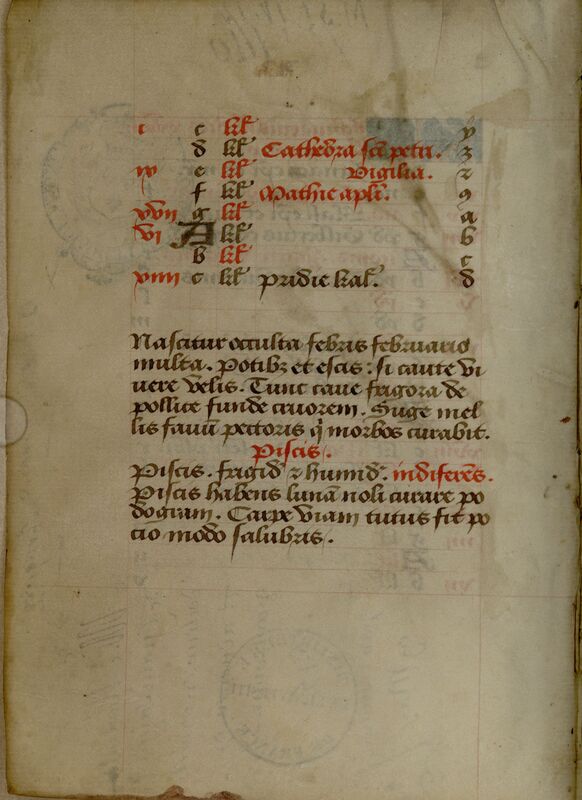 c kl̄ y
d kl̄ Cathedra sc̄i petri. z
iv e kl̄ Vigilia. ꝛ
f kl̄ Mathie apl̄i. 9
xvii g kl̄ a
vi A kl̄ b
b kl̄ c
xiiii c kl̄ pridie kal̄. d
Nascitur occulta febris februario
multa. Potibꝫ et escis: si caute vi
uere velis. Tunc caue frigora de
pollice funde cruorem. Suge mel
lis fauū pectoris q̇ morbos curabit.
Piscis.
Piscis. frigid᷒ ⁊ humid᷒. indiferēs.
Piscis habens lunā noli curare po
dogram. Carpe viam tutus fit po
cio modo salubris.